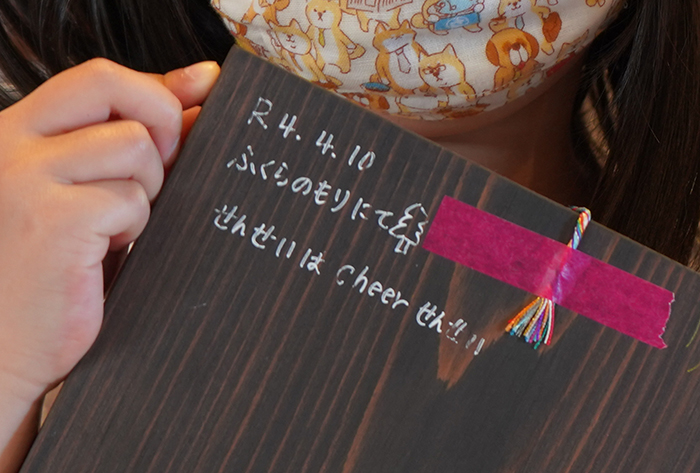 R4.4.10
ふくらのもりにて
せんせいは Cheer せんせい